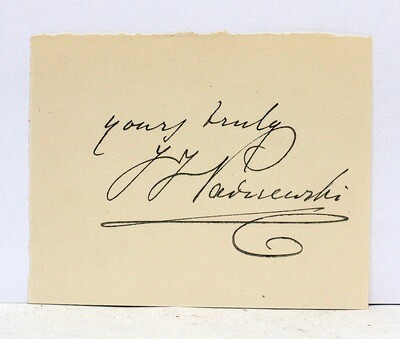 yours truly
J J Padurewski